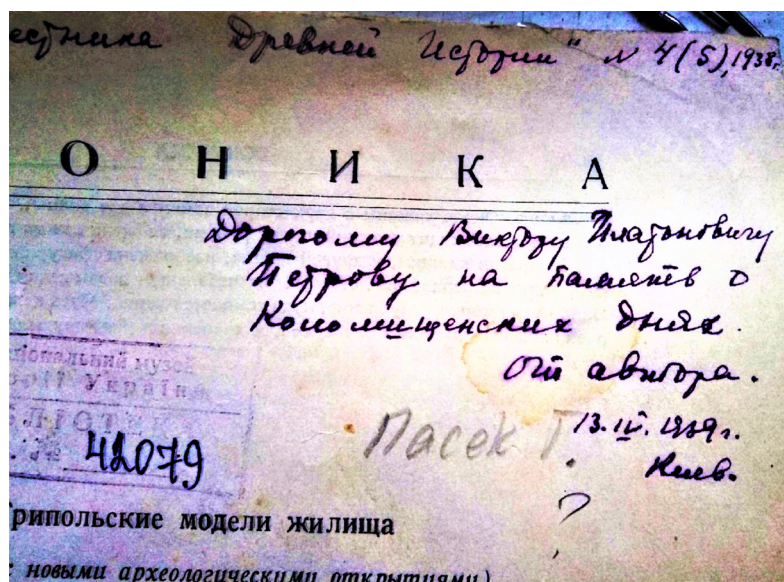 естника Древней Истории" № 4(5), 1938г.
О Н И К А
Дорогому Виктору Платоновичу
Петрову на память о
Коломищенских днях.
От автора.
13.IV.1939г.
Киев.
Пасек Т.
?
ціональний музей
орії Україн
БЛІОТ
42079
рипольские модели жилища
с новыми археологическими открытиями)